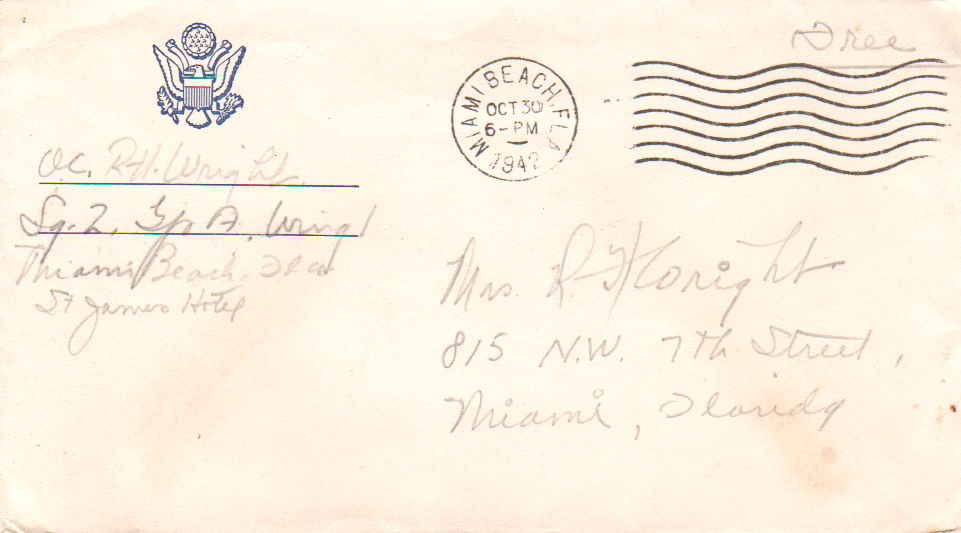 Free
MIAMI BEACH, FLA
OCT 30
6-PM
1942
O.C. R.H. Wright
Sq. 2, Gp A, Wing 1
Miami Beach, Fla
St James Hotel
Mrs. R H Wright
815 N.W. 7th Street,
Miami, Florida